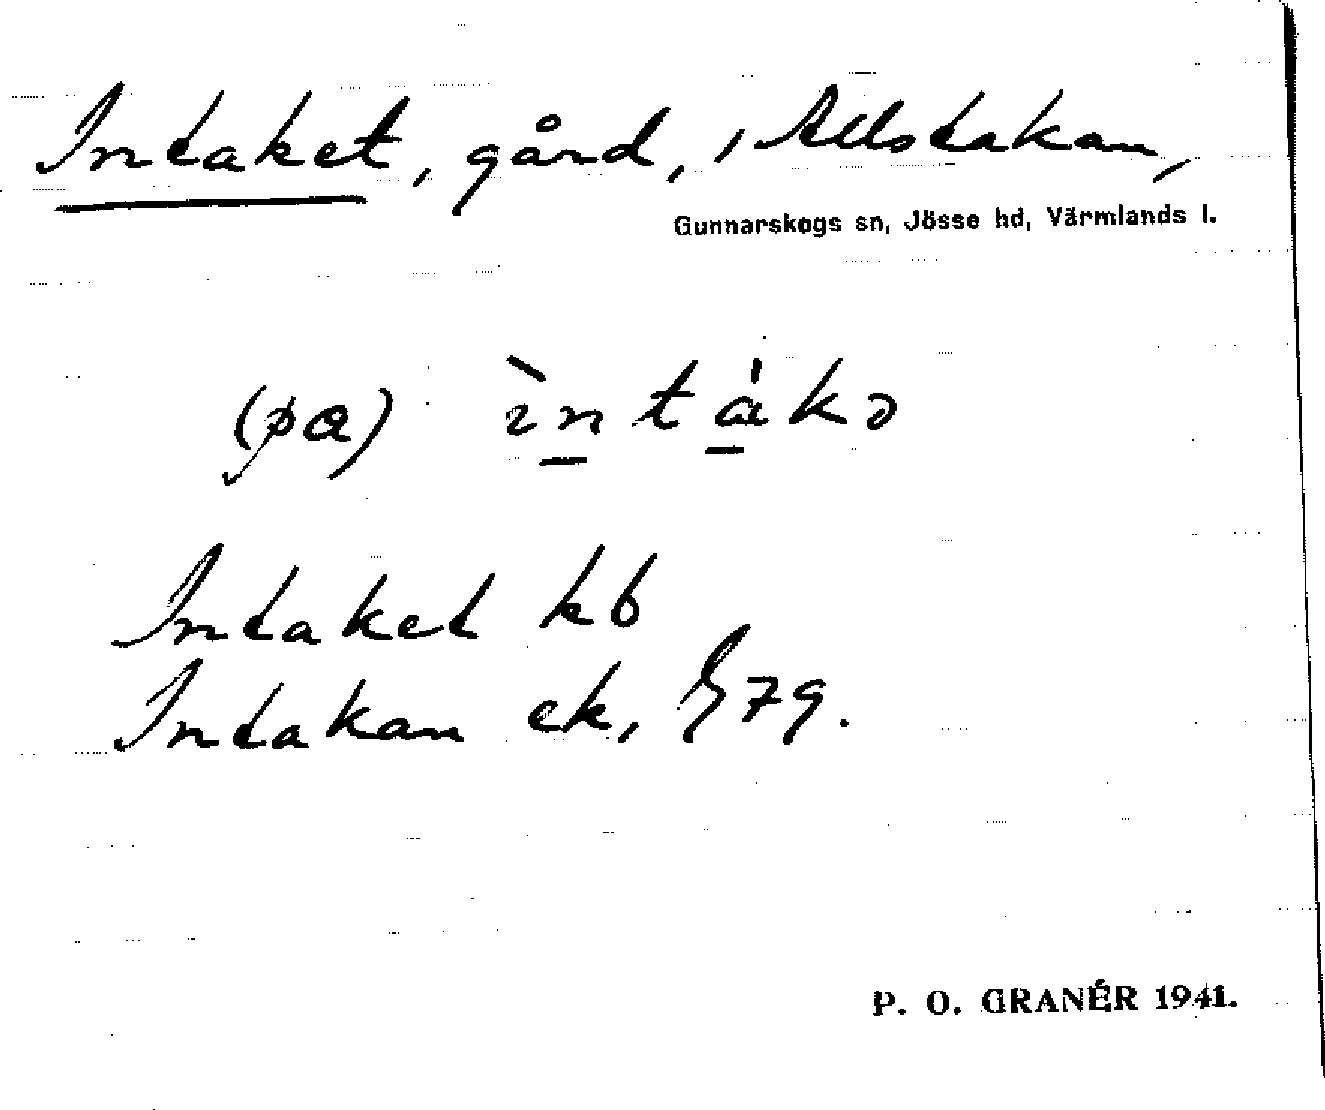 Intaket, gård, i Allstakan,
Gunnarskogs sn, Jösse hd, Värmlands l.
(pɑ) ìntákə
Intaket kb
Intakan ek, G79.
P. O. GRANÉR 1941.